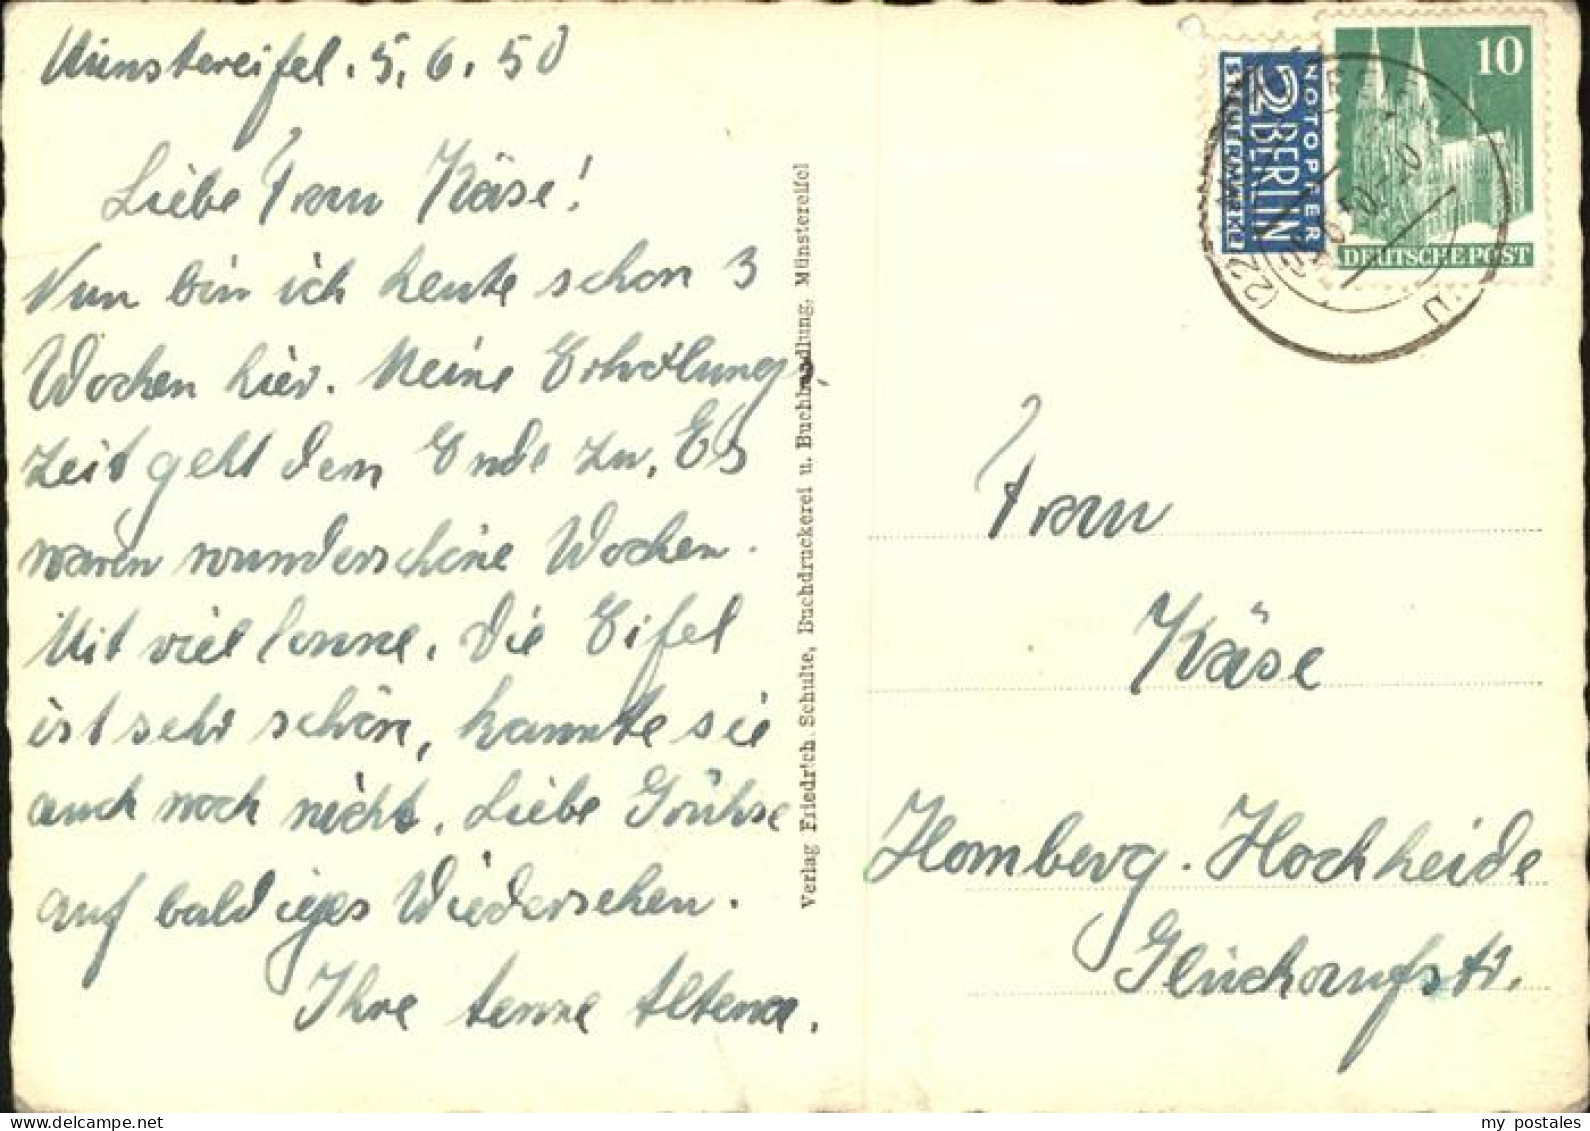 Münstereifel. 5. 6. 50
Liebe Frau Käse!
Nun bin ich heute schon 3
Wochen hier. Meine Erholungs-
zeit geht dem Ende zu. Es
waren wunderschöne Wochen.
Mit viel Sonne. Die Eifel
ist sehr schön, kannte sie
auch noch nicht. Liebe Grühse
auf baldiges Wiedersehen.
Ihre Altena.
Verlag Friedrich Schulte, Buchdruckerei u. Buchhandlung, Münstereifel
NOTOPFER
2 BERLIN
STEUERMARKE
10
DEUTSCHE POST
(22
Frau
Käse
Homberg-Hochheide
Glückaufstr.
my postales